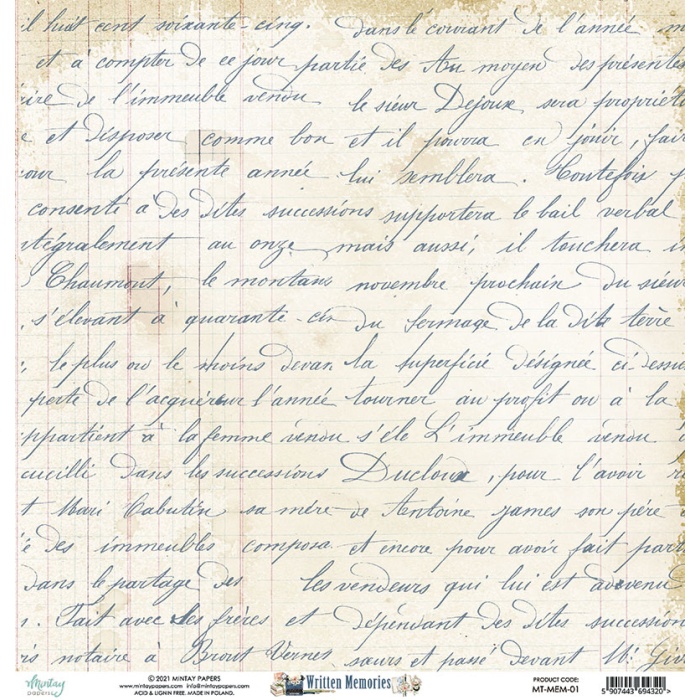 il huit cent soixante-cinq. dans le courant de l'année
et à compter de ce jour partie des Au moyen des présentes
de l'immeuble vendu le sieur Dejoux sera propriét
e et disposer comme bon et il pourra en jouir, fair
our la présente année lui semblera. Toutefois p
consenti a des dites successions supportera le bail verbal
ntégralement au onze mais aussi, il touchera i
Chaumont, le montant novembre prochain du sieur
, s'élevant à quarante-cin du fermage de la dite terre
; le plus ou le moins devan la superficie désignée ci dessu
perte de l'acquéreur l'année tourner au profit ou à la
ppartient à la femme vendu s'éle L'immeuble vendu
cueilli dans les successions Ducloux, pour l'avoir r
t Mari Cabutin sa mère de Antoine james son père
é des immeubles composa et encore pour avoir fait parti
dans le partage des les vendeurs qui lui est advenu
. Fait avec les frères et dépendant des dites succession
is notaire à Brout Vernet saurs et passé devant Mr
mintay papers
© 2021 MINTAY PAPERS
www.mintaypapers.com
ACID & LIGNIN FREE. MADE IN POLAND.
Written Memories
PRODUCT CODE:
MT-MEM-01
5 907443 694320 >